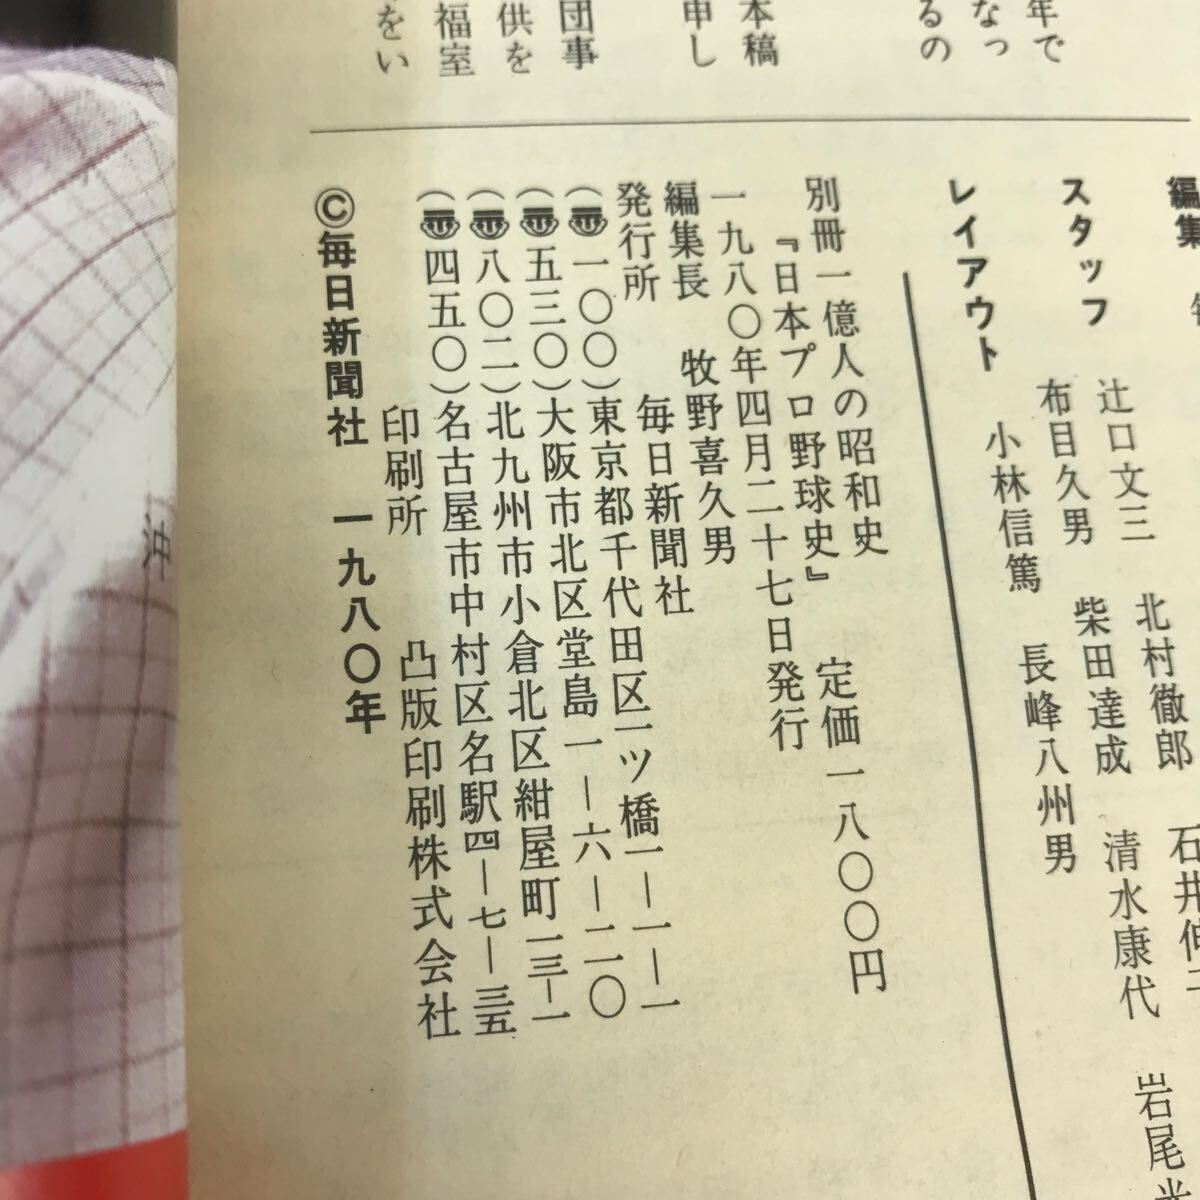 年で
なっ
るの
本稿
申し
団事
供を
福室
をい
編集
スタッフ
辻口文三　北村徹郎　石井伸
布目久男　柴田達成　清水康代　岩尾光
レイアウト
小林信篤　長峰八州男
別冊一億人の昭和史
『日本プロ野球史』　定価一八〇〇円
一九八〇年四月二十七日発行
編集長　牧野喜久男
発行所　毎日新聞社
(〠一〇〇)東京都千代田区一ツ橋一―一―一
(〠五三〇)大阪市北区堂島一―六―二〇
(〠八〇二)北九州市小倉北区紺屋町一三―一
(〠四五〇)名古屋市中村区名駅四―七―三五
印刷所　凸版印刷株式会社
©毎日新聞社　一九八〇年
沖